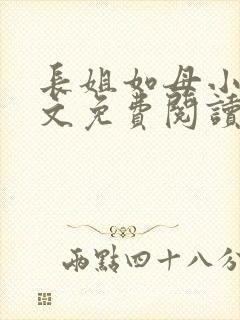 長姐如母小
文免費閱讀
兩點四十八分